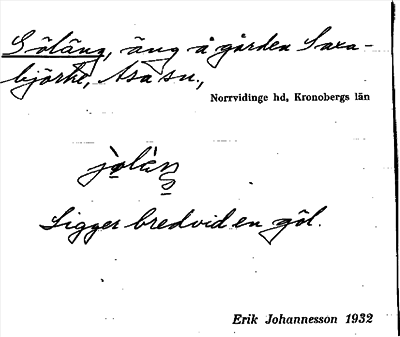 Göläng, äng å gården Saxa-
björke, Asa sn.,
Norrvidinge hd, Kronobergs län
Ligger bredvid en göl.
Erik Johannesson 1932